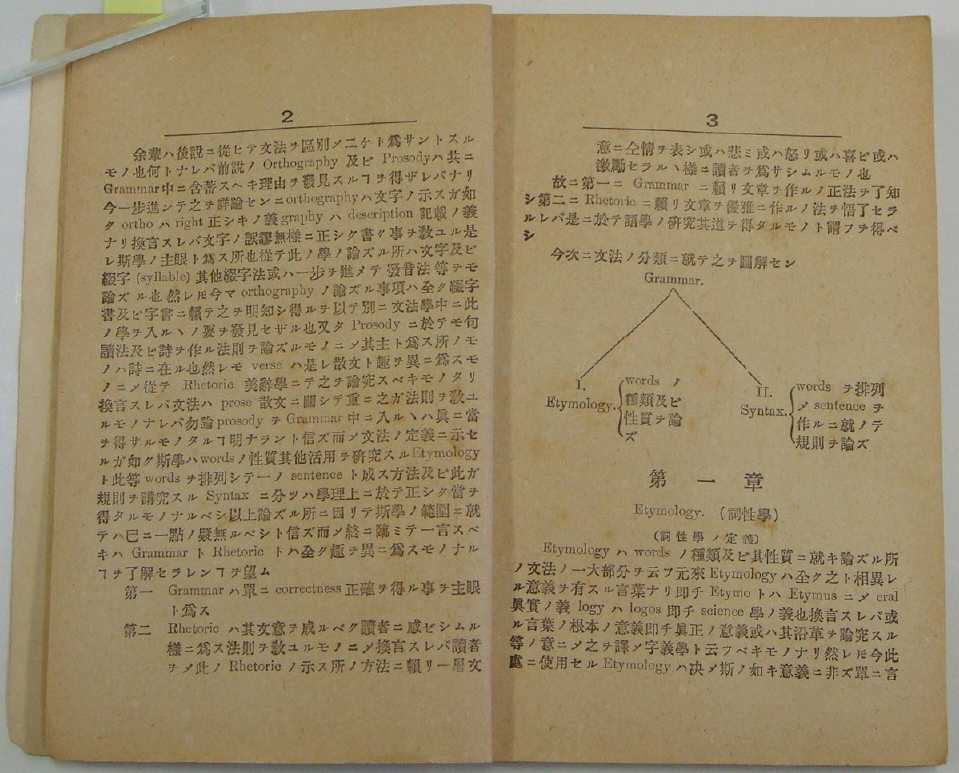 2
余輩ハ後説ニ從ヒテ文法ヲ區別〆二ケト爲サントスル
モノ也何トナレバ前説ノ Orthography 及ビ Prosodyハ共ニ
Grammar中ニ含蓄スヘキ理由ヲ發見スルヿヲ得ザレバナリ
今一歩進ンテ之ヲ詳論センニorthographyハ文字ノ示スガ如
ク ortho ハ right 正シキノ義graphy ハ description 記載ノ義
ナリ換言スレバ文字ノ訳謬無様ニ正シク書ク事ヲ教ユル是
レ斯學ノ主眼ト爲ス所也從テ此ノ學ノ論ズル所ハ文字及ビ
綴字 (syllable) 其他綴字法或ハ一歩ヲ進メテ發音法等テモ
論ズル也然レㇳモ今マ orthography ノ論ズル事項ハ全ク綴字
書及ビ字書ニ頼テ之ヲ明知シ得ルヲ以テ別ニ文法學中ニ此
ノ學ヲ入ルヽノ要ヲ發見セザル也又タ Prosody ニ於テモ句
讀法及ビ詩ヲ作ル法則ヲ論ズルモノニ〆其主ト爲ス所ノモ
ノハ詩ニ在ル也然レモ verse ハ是レ散文ト趣ヲ異ニ爲スモ
ノニ〆從テ Rhetoric 美辭學ニテ之ヲ論究スベキモノタリ
換言スレバ文法ハ prose 散文ニ關シテ重ニ之ガ法則ヲ教ユ
ルモノナレバ勿論 prosody ヲ Grammar中ニ入ルヽハ眞ニ當
ヲ得サルモノタルヿ明ナラント信ズ而〆文法ノ定義ニ示セ
ルガ如ク斯學ハwordsノ性質其他活用ヲ研究スルEtymology
ト此等 words ヲ排列シテ一ノ sentence ト成ス方法及ビ此ガ
規則ヲ講究スル Syntax ニ分ツハ學理上ニ於テ正シク當ヲ
得タルモノナルベシ以上論ズル所ニ因リテ斯學ノ範圍ニ就
テハ巳ニ一點ノ疑無ルベシト信ズ而〆終ニ臨ミテ一言スベ
キハ Grammar ト Rhetoric トハ全ク趣ヲ異ニ爲スモノナル
ヿヲ了解セラレンヿヲ望ム
第一 Grammar ハ單ニ correctness 正確ヲ得ル事ヲ主眼
ト爲ス
第二 Rhetoric ハ其文意ヲ成ルベク讀者ニ感ビシムル
樣ニ爲ス法則ヲ教ユルモノニ〆換言スレバ讀者
ヲ〆此ノ Rhetoric ノ示ス所ノ方法ニ頼リ一層文
3
意ニ全情ヲ表シ或ハ悲ミ或ハ怒リ或ハ喜ビ或ハ
激勵セラルヽ樣ニ讀者ヲ爲サシムルモノ也
故ニ第一ニ Grammar ニ頼リ文章ヲ作ルノ正法ヲ了知
シ第二ニ Rhetoric ニ頼リ文章ヲ優雅ニ作ルノ法ヲ悟了セラ
ルレバ是ニ於テ語學ノ研究其道ヲ得タルモノト謂フヲ得ベ
シ
今次ニ文法ノ分類ニ就テ之ヲ圖解セン
Grammar.
I.
Etymology.
words ノ
種類及ビ
性質ヲ論
ズ
II.
Syntax.
words ヲ排列
〆 sentence ヲ
作ルニ就ノテ
規則ヲ論ズ
第一章
Etymology. (詞性學)
(詞性學ノ定義)
Etymology ハ words ノ種類及ビ其性質ニ就キ論ズル所
ノ文法ノ一大部分ヲ云フ元來 Etymology ハ全ク之ト相異レ
ル意義ヲ有スル言葉ナリ即チ Etymo トハ Etymus ニ〆 eral
眞實ノ義 logy ハ logos 即チ science 學ノ義也換言スレバ或
ル言葉ノ根本ノ意義即チ眞正ノ意義或ハ其沿革ヲ論究スル
等ノ意ニ〆之ヲ譯〆字義學ト云フベキモノナリ然レモ今此
處ニ使用セル Etymology ハ决〆斯ノ如キ意義ニ非ズ單ニ言